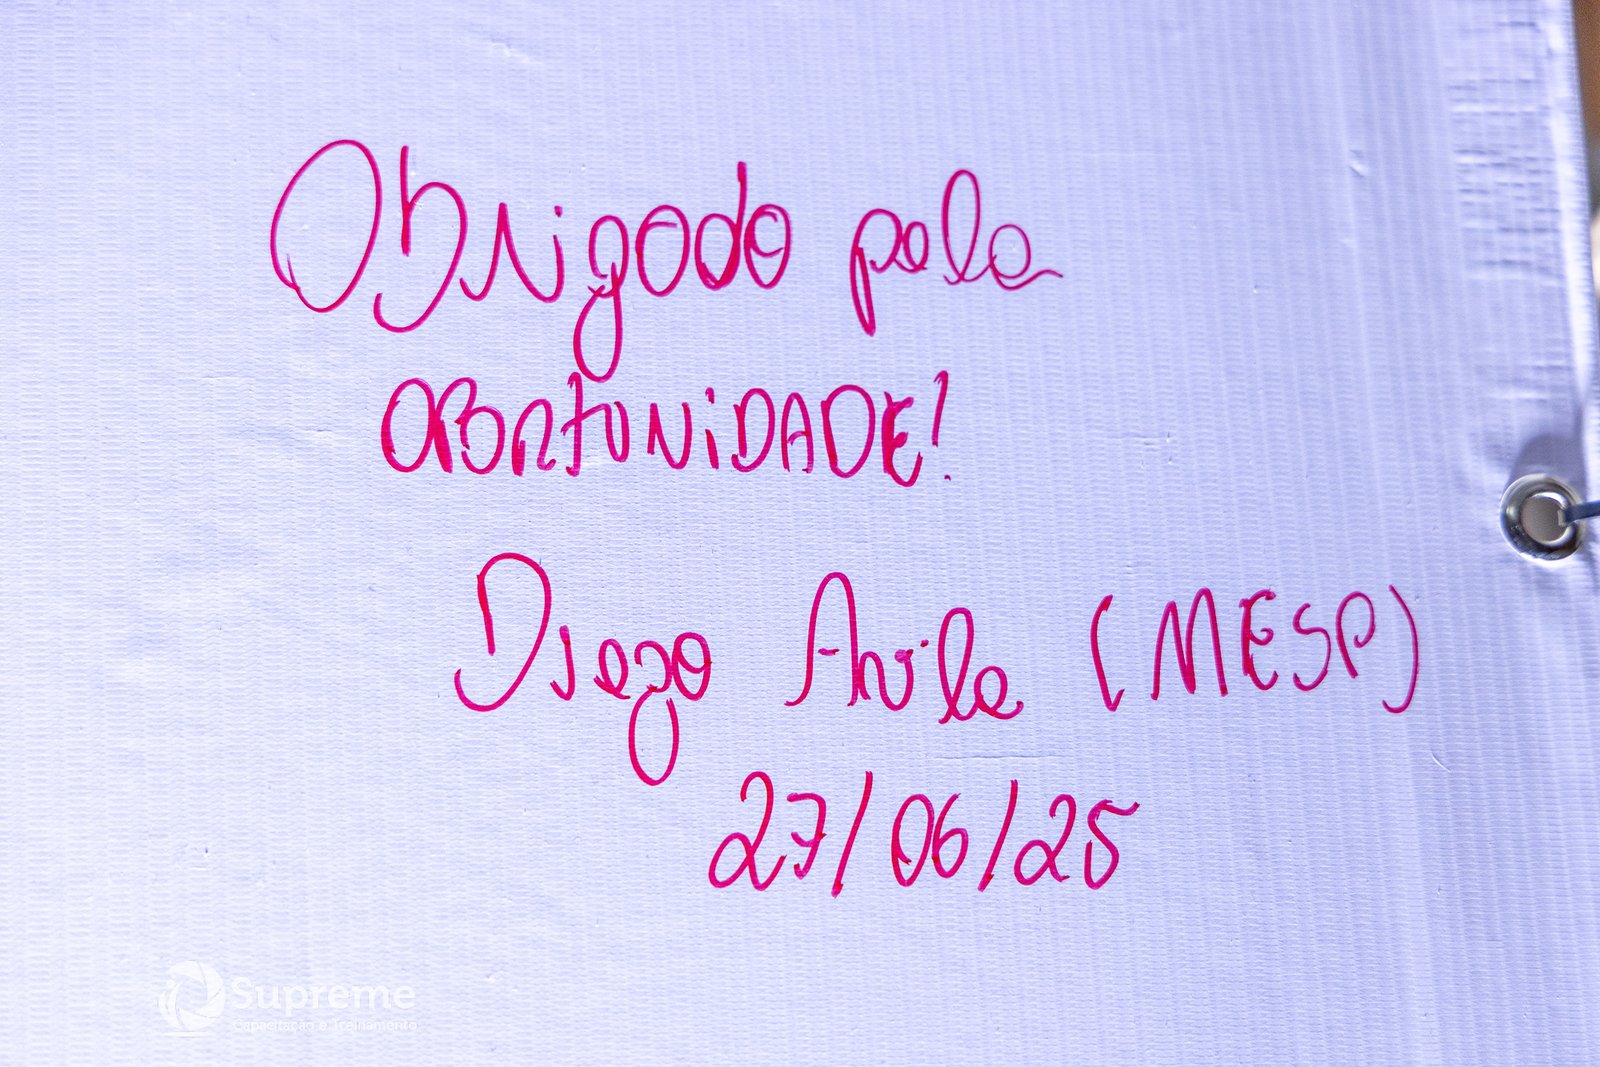 Obrigado pela
OPORTUNIDADE!
Diego Avila (MESP)
27/06/25
Supreme
Capacitação e Treinamento